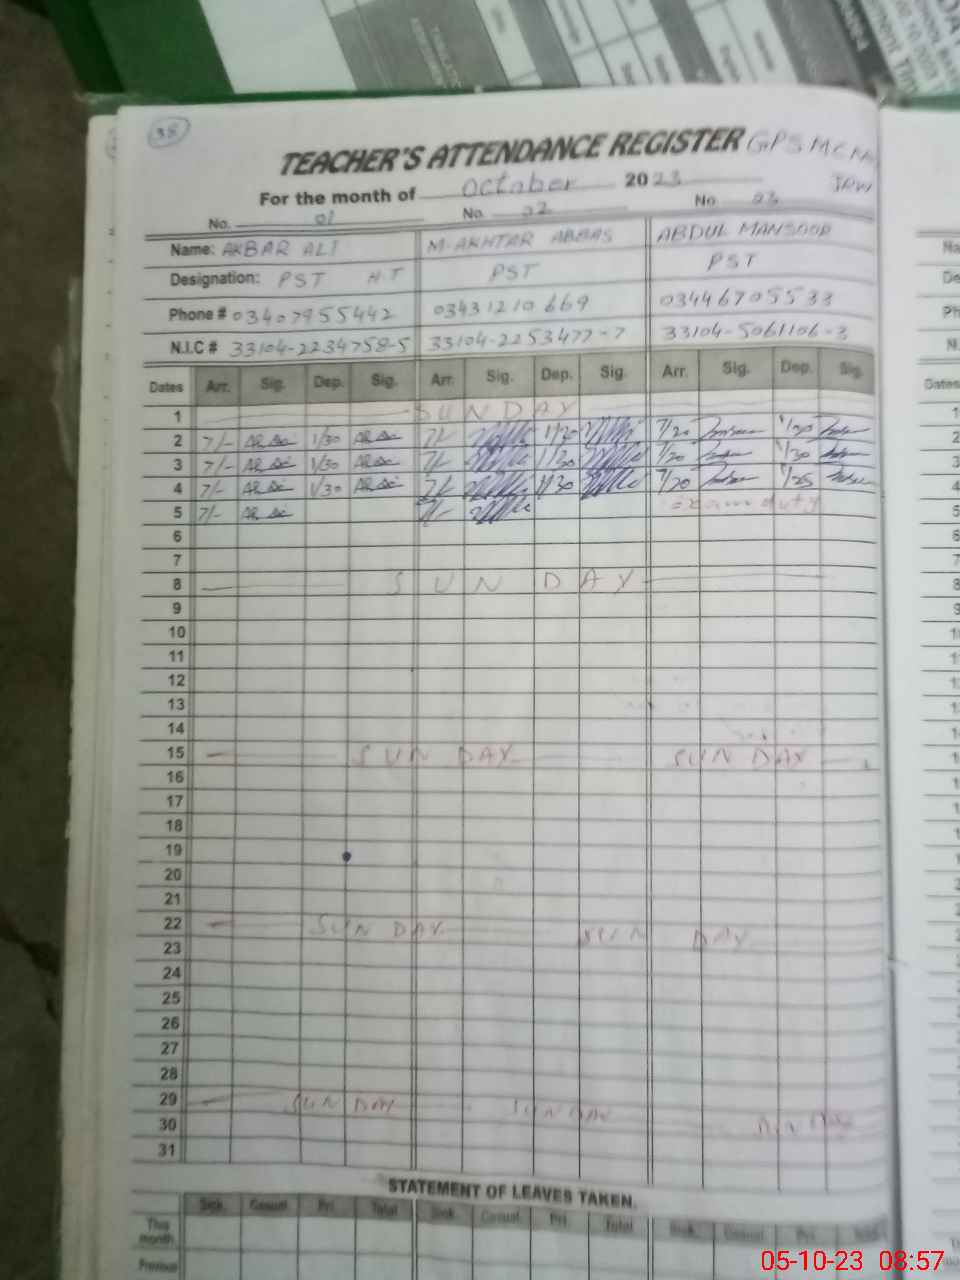 38
TEACHER'S ATTENDANCE REGISTER GPS MCM
JRW
For the month of October 2023
No. 01 No. 02 No 03
Name: AKBAR ALI M. AKHTAR ABBAS ABDUL MANSOOR
Designation: PST H.T PST PST
Phone # 03407955442 03431210669 03446705533
N.I.C # 33104-2234758-5 33104-2253477-7 33104-5061106-3
Dates Arr. Sig. Dep. Sig. Arr. Sig. Dep. Sig. Arr. Sig. Dep. Sig.
1 SUNDAY
2 7/- 1/30 7/- 1/30 7/20 1/30
3 7/- 1/30 7/- 1/30 7/20 1/30
4 7/- 1/30 7/- 1/30 7/20 1/25
5 7/- 7/- exam duty
6
7
8 SUNDAY
9
10
11
12
13
14
15 SUNDAY SUNDAY
16
17
18
19
20
21
22 SUNDAY SUNDAY
23
24
25
26
27
28
29 SUNDAY SUNDAY SUNDAY
30
31
STATEMENT OF LEAVES TAKEN.
Sick. Casual. Pri. Total Sick. Casual. Pri. Total Sick. Casual. Pri. Total
This month.
Previous
05-10-23 08:57